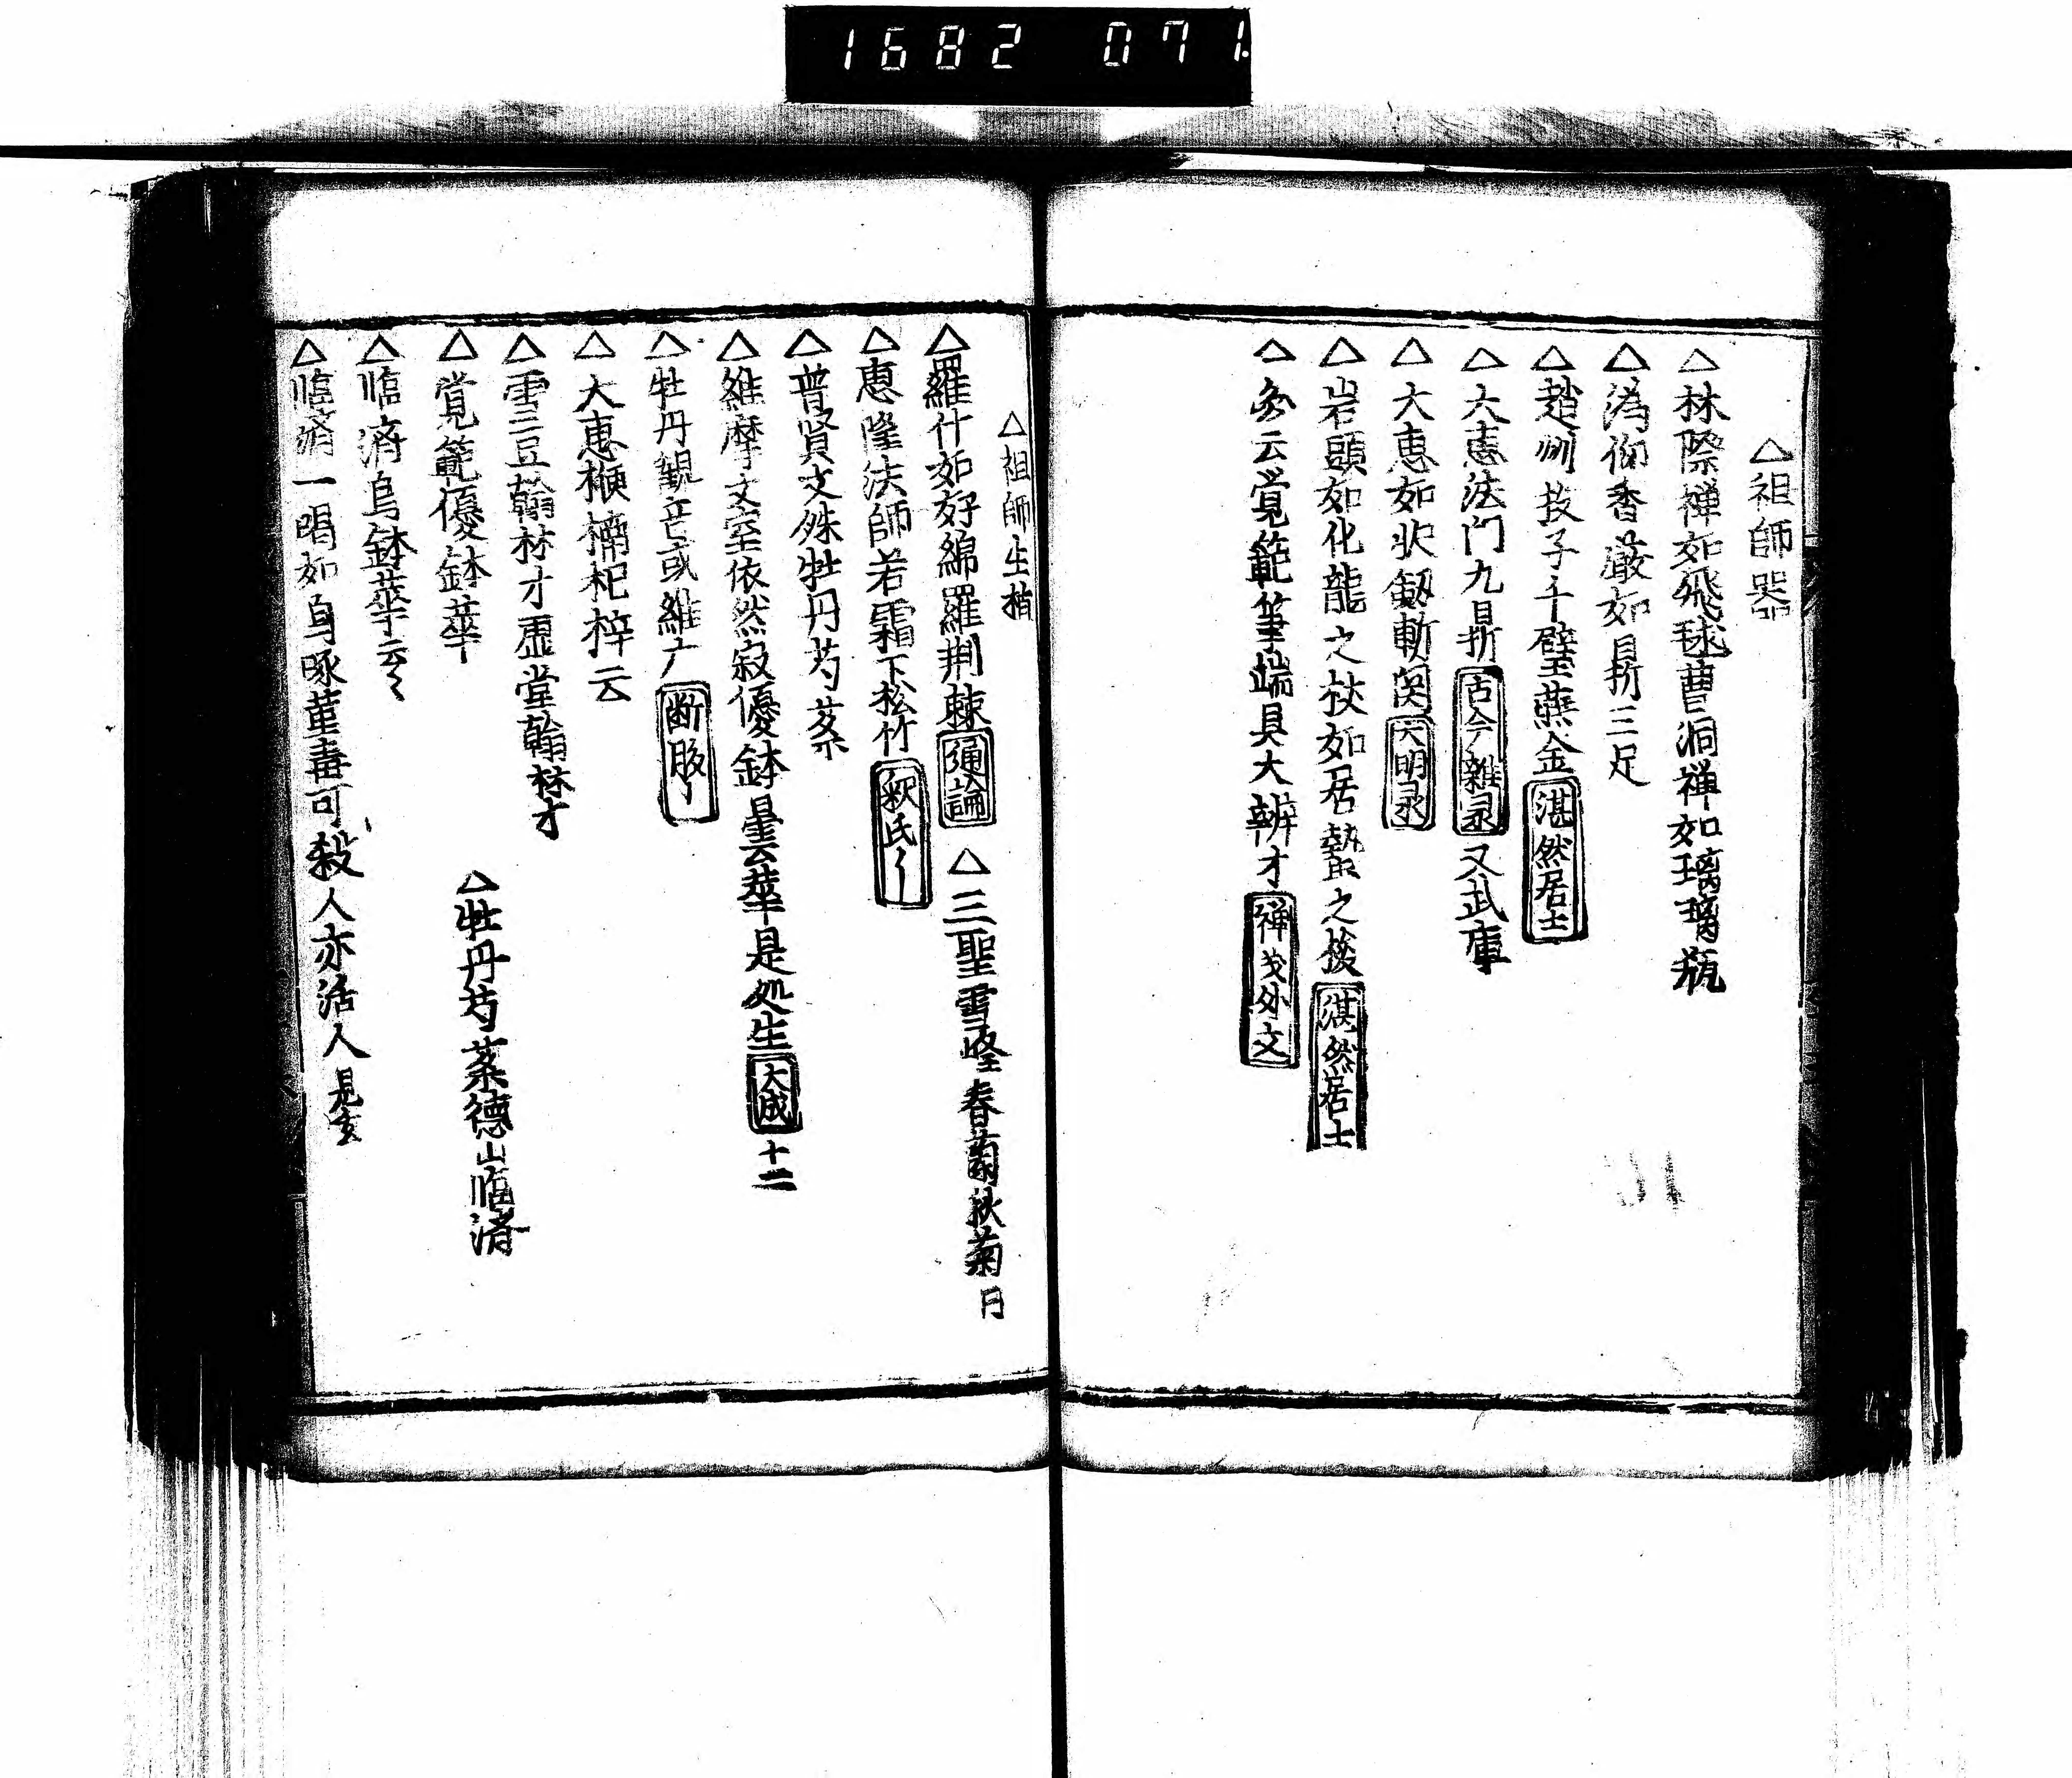 1682 071
△祖師器
△林際禅如飛毬曹洞禅如璃璃瓶
△溈仰香嚴如鼎三足
△趙州投子千璧燕金 湛然居士
△大惠法門九鼎 古今雜录 又武庫
△大惠如水劔斬 大明录
△岩頭如化龍之杖如居蟄之
△ 云覚範筆端具大辨才 禅 外文
△祖師生植
△羅什如好綿羅荆棘 彈論 △三聖雪峰春蘭秋菊 月
△惠隆法師若霜下松竹 釈氏〻
△普賢文殊牡丹芍薬
△維摩丈室依然寂優鉢曇云華是処生 大成 十二
△牡丹観音或維广 断腸
△大惠楩楠杞梓云
△雪豆翰林才虚堂翰林才
△覚範優鉢華 △牡丹芍薬德山臨済
△臨済烏鉢華云〻
△臨済一喝如烏啄菫毒可殺人亦活人